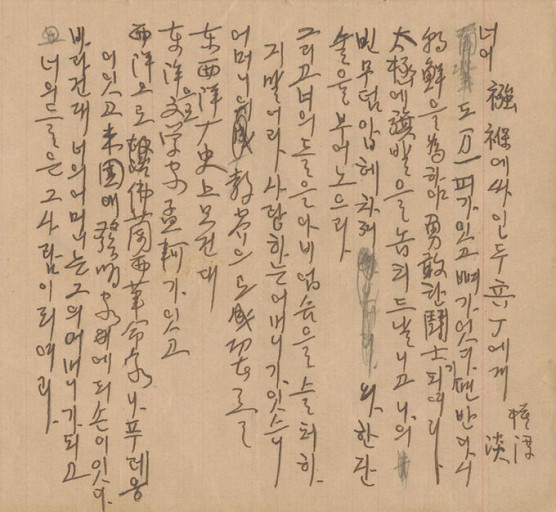 襁褓에 싸인 두 兵丁에게
模淳
淡
너이도 万一 피가 잇고 뼈가 잇다면 반다시
朝鮮을 為하야 勇敢한 鬪士가 되여라
太極에 旗발을 놉피 드날니고 나의
빈 무덤 압헤 차저 와 한 잔
술을 부어 노으라
그리고 너의들은 아비 업슴을 슬퍼하
지 말어라 사랑하는 어머니가 잇스니
어머니의 敎養으로 成功者를
东西洋 史上 보건대
东洋으로 文学家 孟軻가 잇고
西洋으로 佛蘭西 革命家 나푸레옹
이 잇고 米国에 發明家 에디손이 잇다
바라건대 너의 어머니는 그의 어머니가 되고
너의들은 그 사람이 되여라